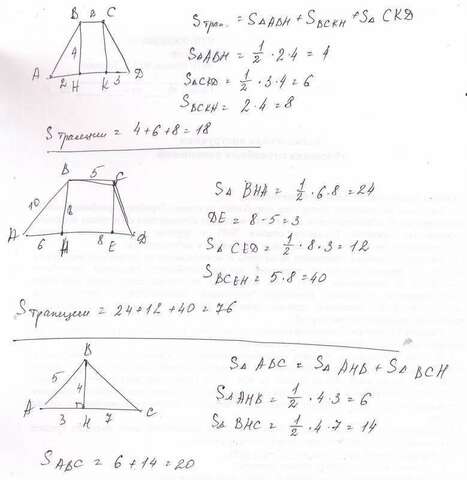 B 2 C
4
A 2 H K 3 D
S трап. = S∆ABH + SBCKH + S∆ CKD
S∆ABH = 1/2 · 2·4 = 4
S∆CKD = 1/2 · 3·4 = 6
SBCKH = 2·4 = 8
S трапеции = 4+6+8 = 18
B 5 C
10 8
A 6 H 8 E D
S∆ BHA = 1/2 · 6·8 = 24
DE = 8-5 = 3
S∆ CED = 1/2 · 8·3 = 12
SBCEH = 5·8 = 40
S трапеции = 24+12+40 = 76
B
5 4
A 3 H 7 C
S∆ ABC = S∆ AHB + S∆ BCH
S∆AHB = 1/2 · 4·3 = 6
S∆ BHC = 1/2 · 4·7 = 14
SABC = 6+14 = 20